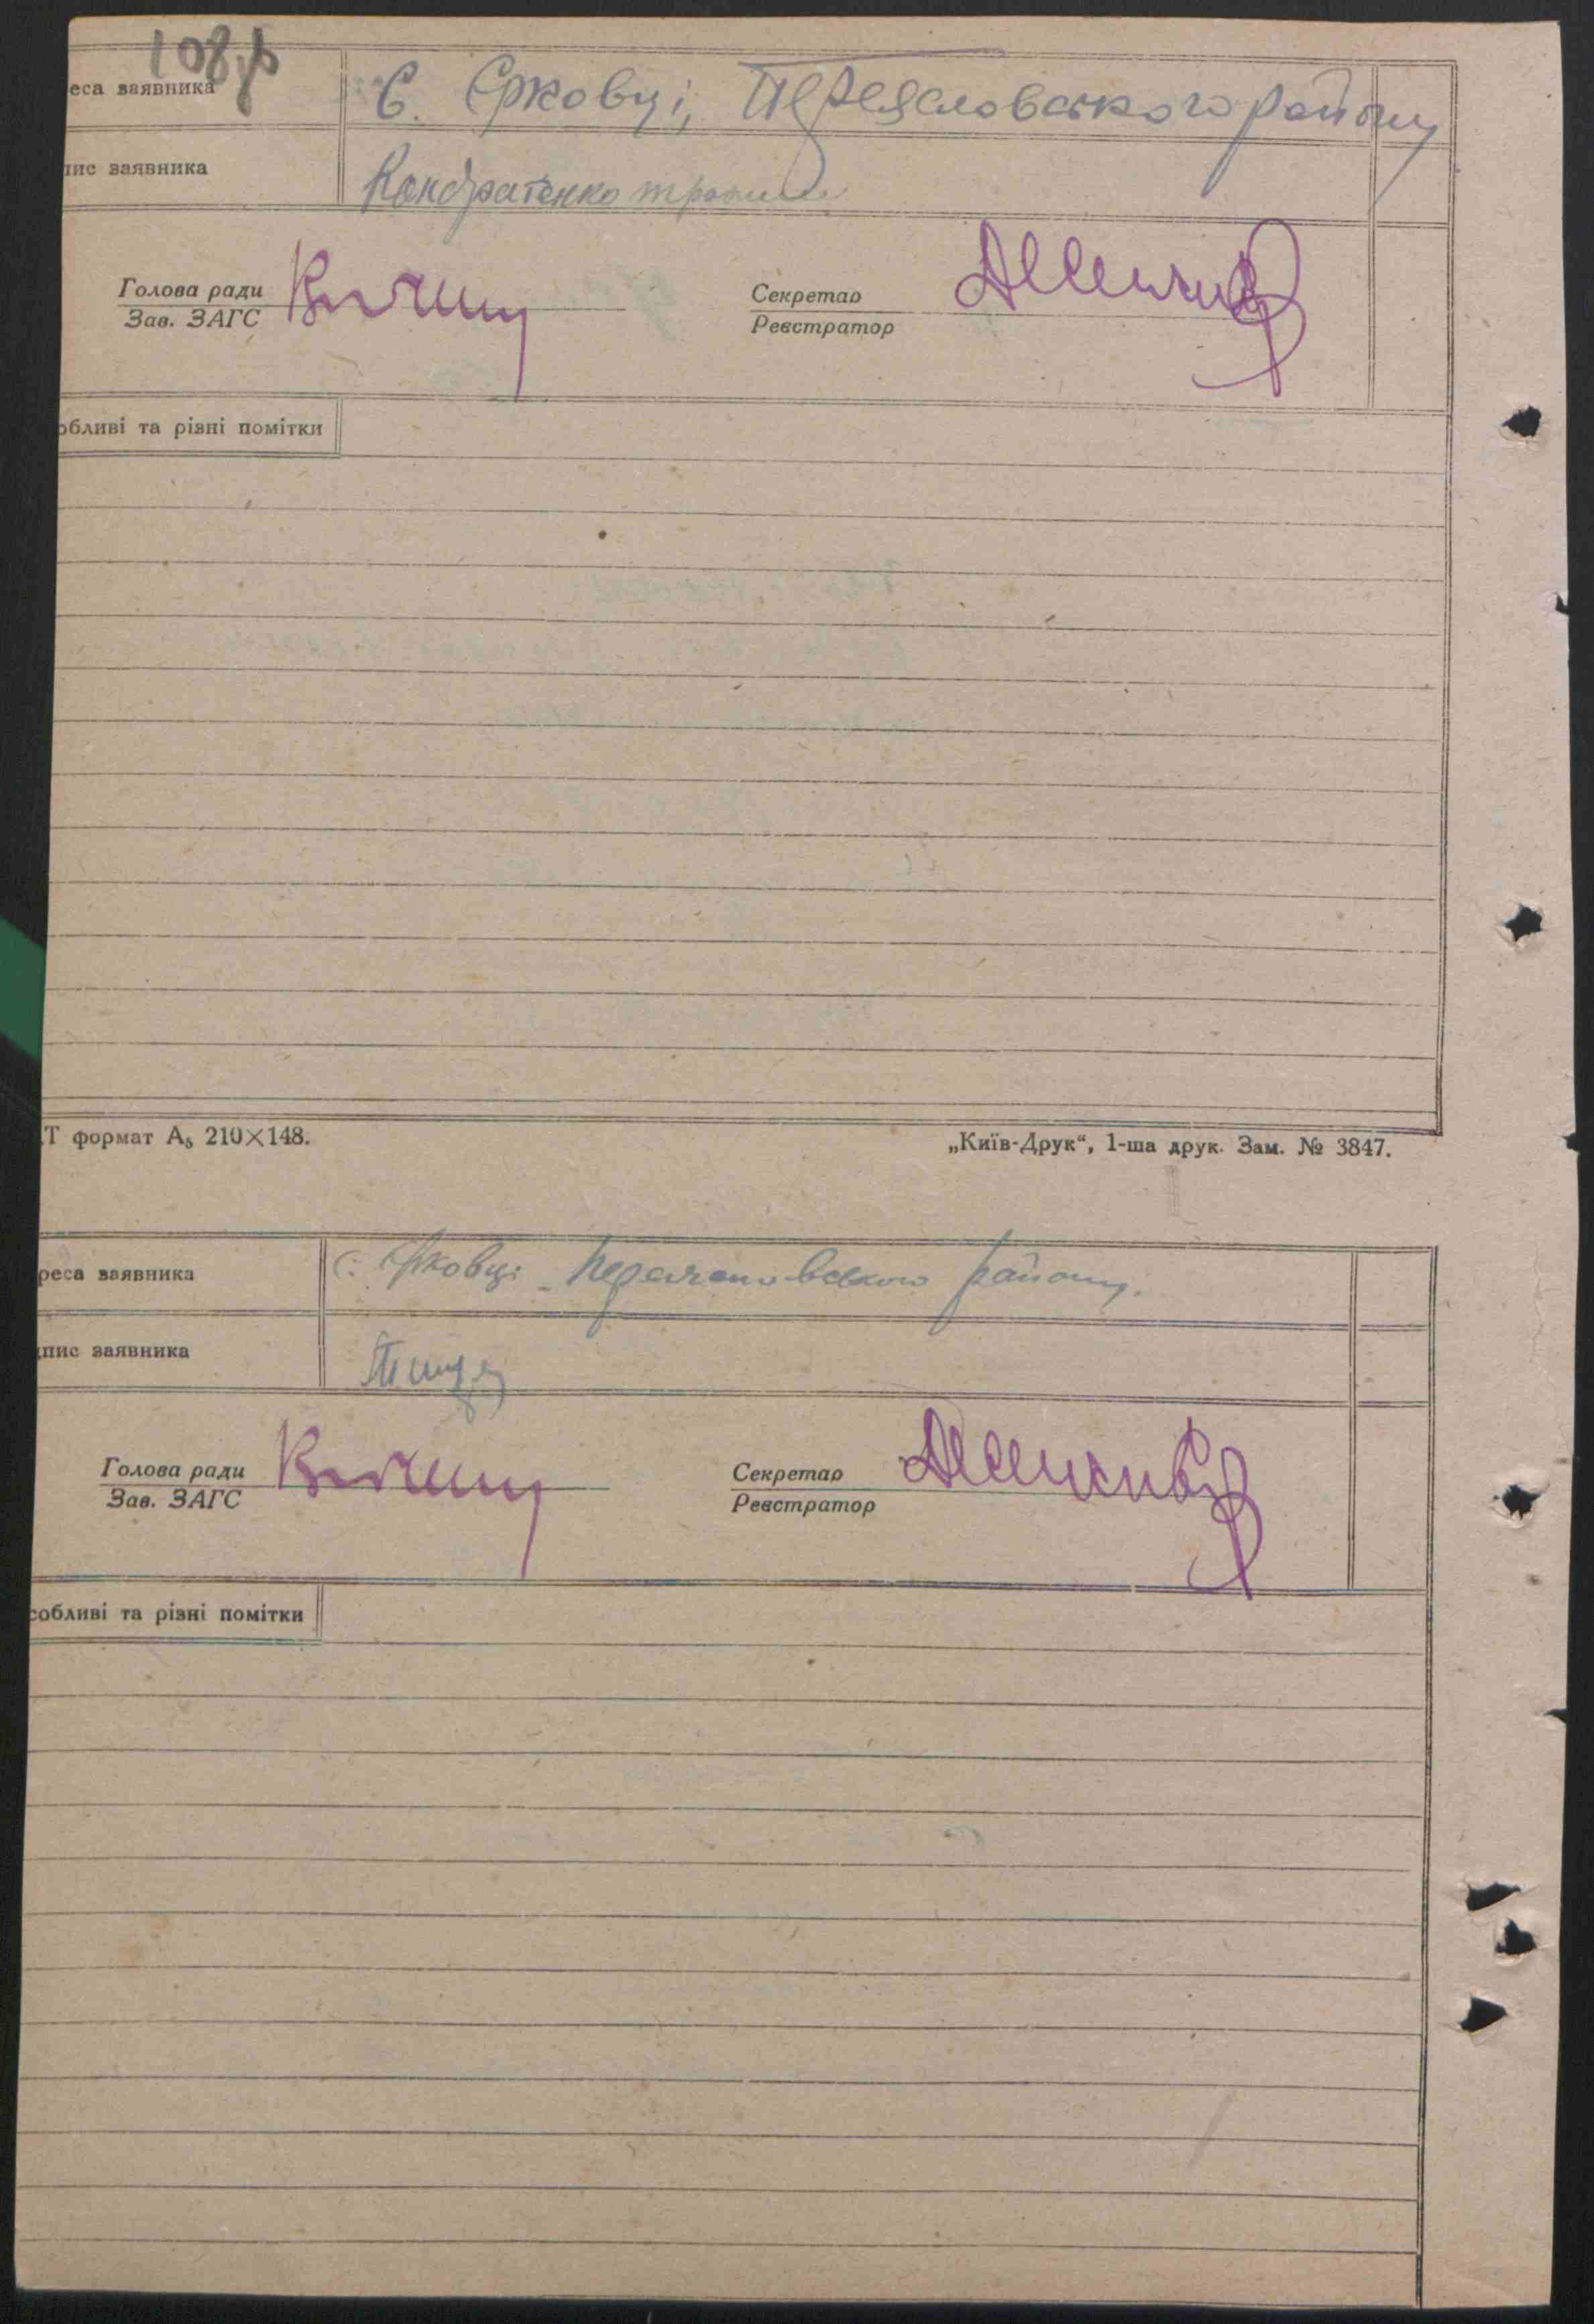 108
еса заявника С. Єрковці, Переяславського району
пис заявника Кондратенко
Голова ради Секретар
Зав. ЗАГС Реєстратор
обливі та різні помітки
Т формат А₅ 210×148. „Київ-Друк“, 1-ша друк. Зам. № 3847.
реса заявника с. Єрковці Переяславського району.
пис заявника
Голова ради Секретар
Зав. ЗАГС Реєстратор
собливі та різні помітки